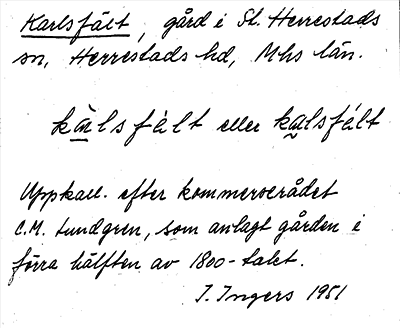 Karlsfält, gård i St. Herrestads
sn, Herrestads hd, Mhs län.
kàlsfált eller kalsfált
Uppkall. efter kommerserådet
C.M. Lundgren, som anlagt gården i
förra hälften av 1800-talet.
I. Ingers 1981